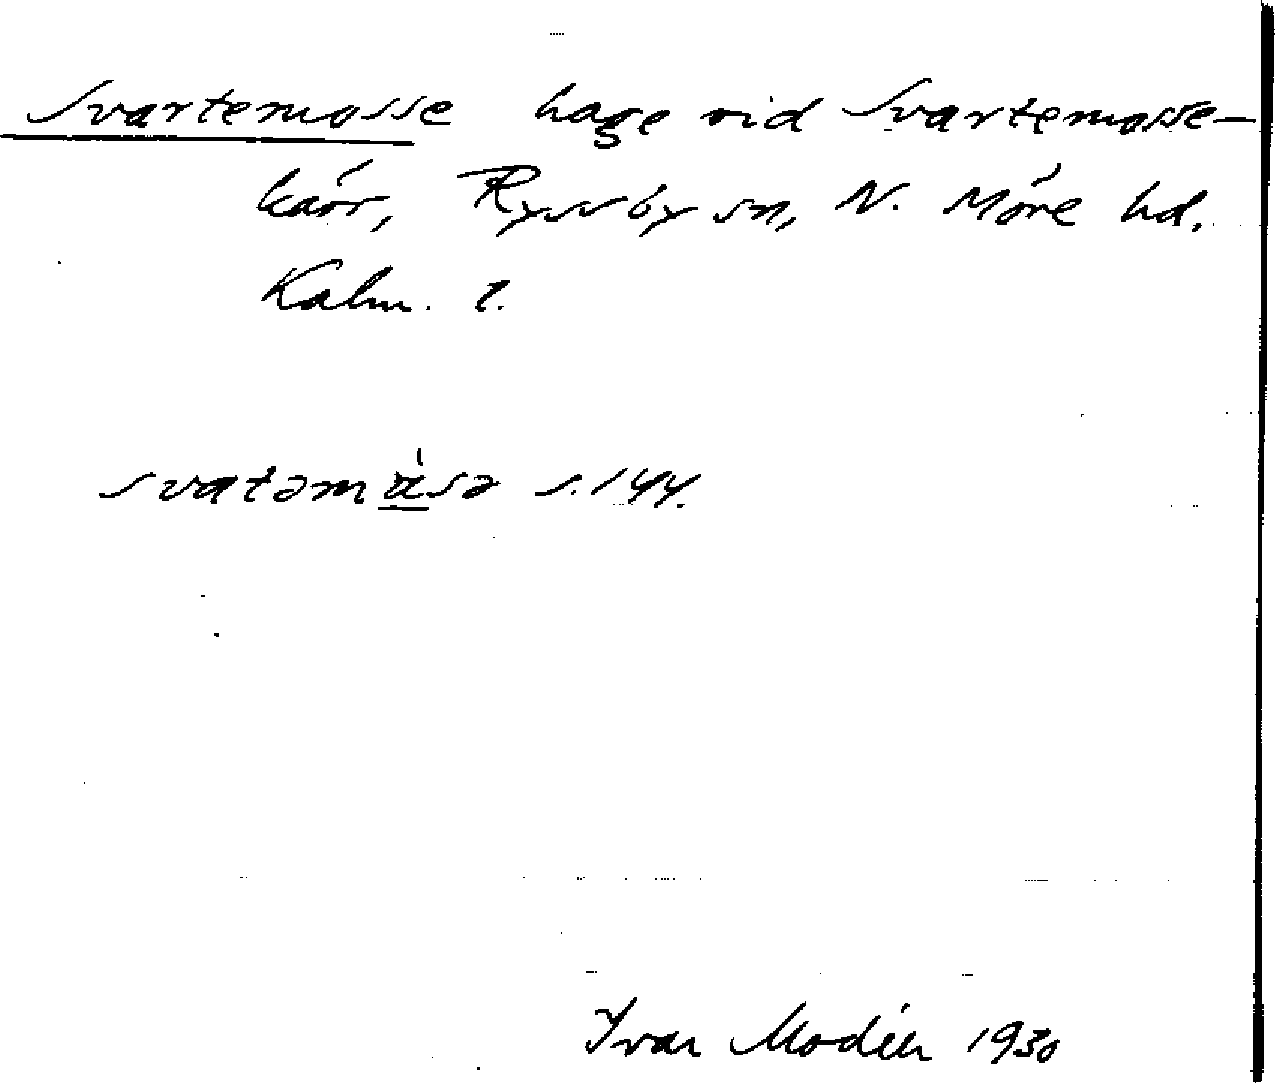 Svartemosse hage vid Svartemosse-
kärr, Ryssby sn, N. Möre hd.
Kalm. l.
svatəmåsə s. 144.
Ivar Modéer 1930